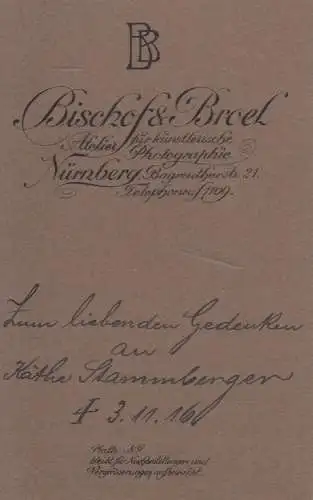 BB
Bischof & Broel
Atelier für künstlerische
Photographie
Nürnberg, Bayreutherstr. 21.
Telephonruf 1109.
Zum liebenden Gedenken
an
Käthe Stammberger
3.11.16
bleibt für Nachbestellungen und
Vergrösserungen aufbewahrt.